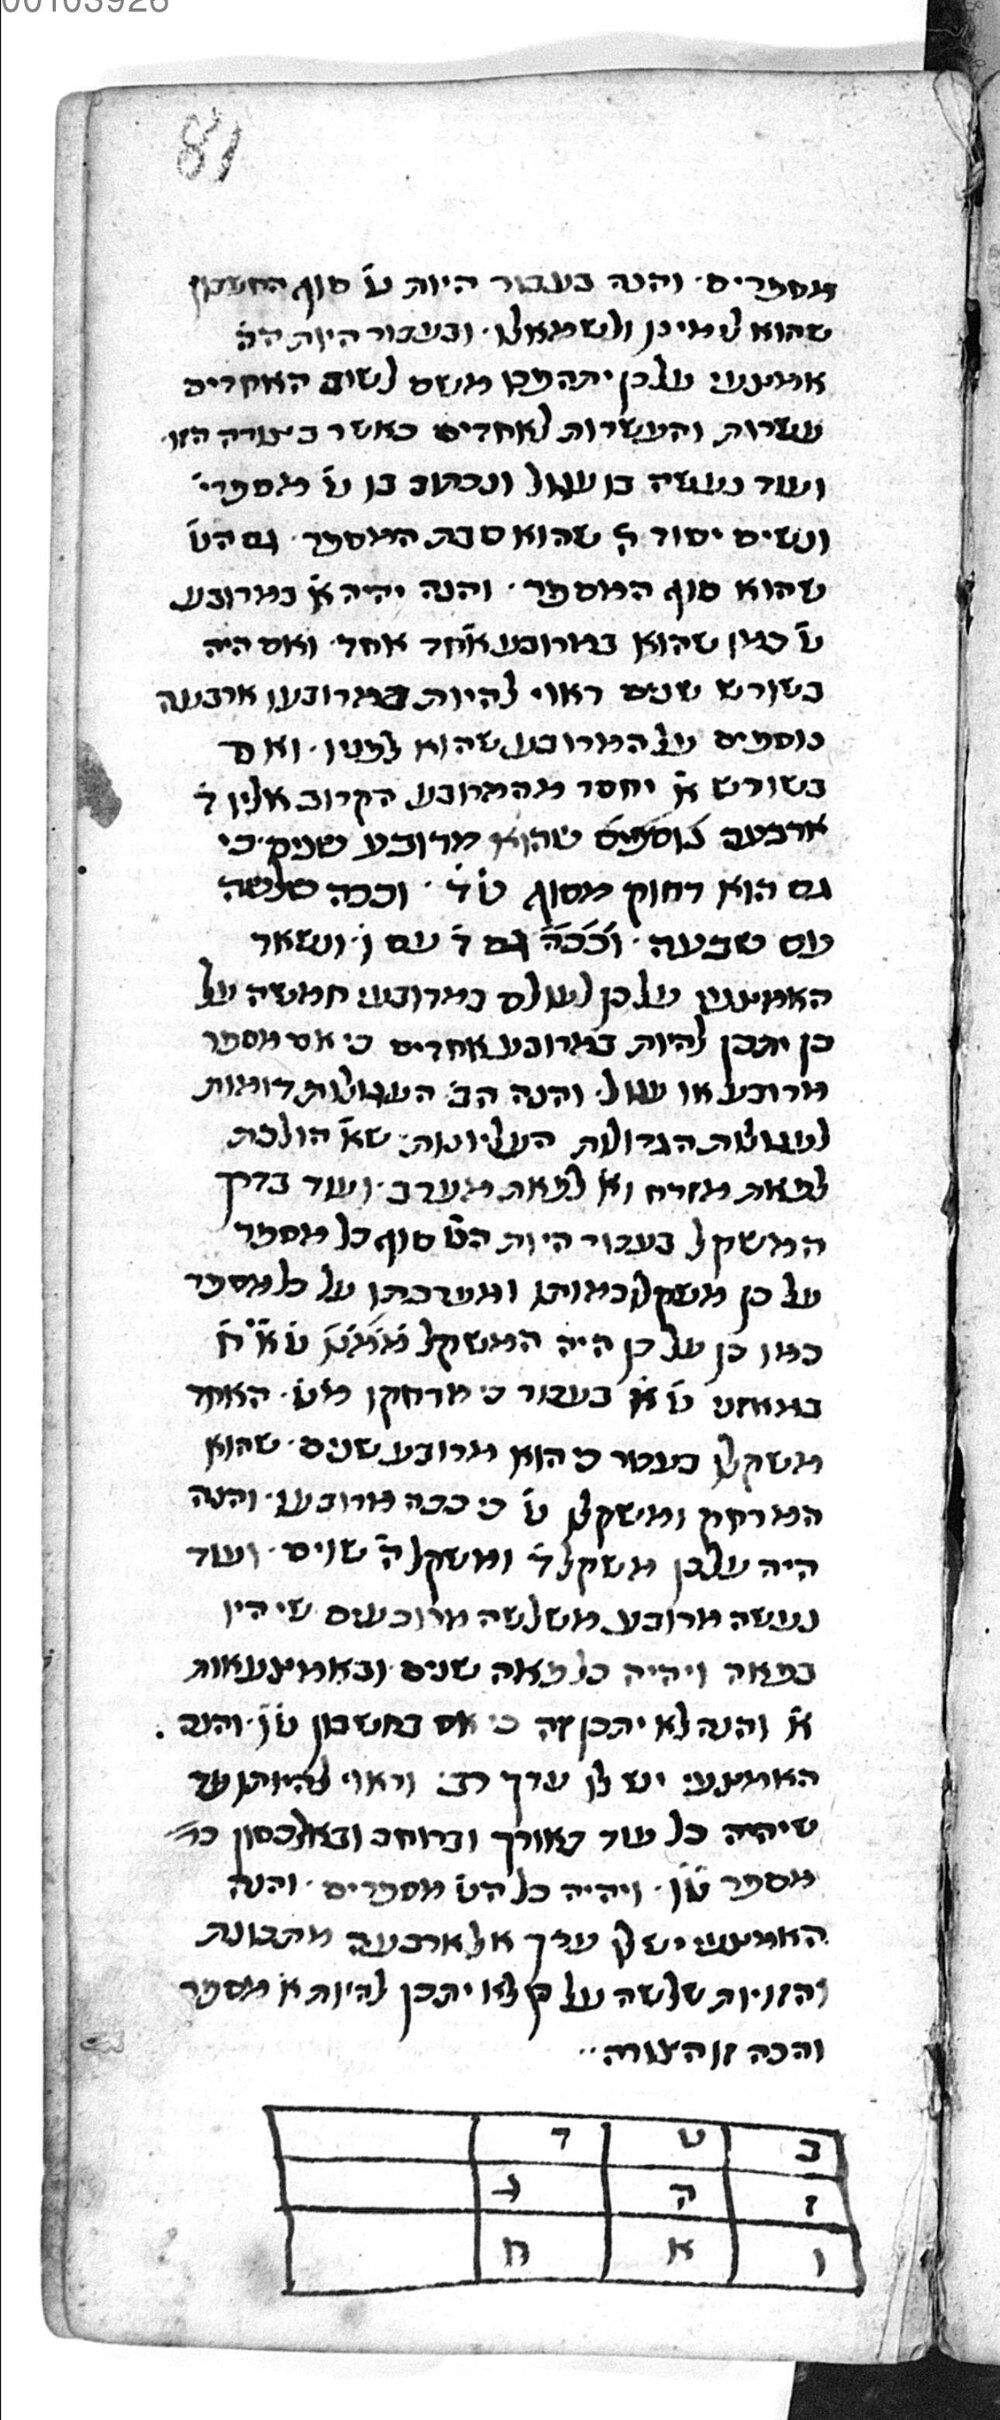 00103926
81
מספרים· והנה בעבור היות ט׳ סוף החשבון
שהוא לימינו ולשמאלו· ובעבור היות הה׳
אמצעי על כן יתהפכו משם לשום האחדים
עשרות והעשרות לאחדים כאשר בצורה הזו·
ועוד נעשה בו עגול ונכתוב בו ט׳ מספרי׳
ונשים יסוד ה׳ שהוא סבת המספר· גם הט׳
שהוא סוף המספר· והנה יהיה א׳ במרובע
ט׳ כמו שהוא במרובע אחד אחד· ואם היה
בשורש שנים ראוי להיות במרובעו ארבעה
נוספים על המרובע שהוא לפניו· ואם
בשורש א׳ יחסר מהמרובע הקרוב אליו ד׳
ארבעה נוספים שהוא מרובע שנים· כי
גם הוא רחוק מסוף ט׳ ד׳· וככה שלשה
עם שבעה· וככה גם ד׳ עם ו׳· ונשאר
האמצעי על כן לעולם במרובעו חמשה על
כן יתכן להיות במרובע אחדים כי אם מספר
מרובע או עגול· והנה הב׳ העגולות דומות
לעגולות הגדולות העליונות· שא׳ הולכת
לפאת מזרח וא׳ לפאת מערב· ועוד בדרך
המשקל בעבור היות הט׳ סוף כל מספר
על כן משקלו כמותו ומערכתו על כל מספר
כמו כן על כן היה המשקל ט׳ א׳ ח׳
במאזני ט׳ א׳ בעבור כי מרחקו מט׳· האחד
משקלו כי הוא מרובע שנים· שהוא
המרחק ומשקלו ט׳ כי ככה מרובעו· והנה
היה על כן משקל ד׳ ומשקל ה׳ שוים· ועוד
נעשה מרובע משלשה מרובעים שיהיו
בפאה ויהיה כל פאה שנים ובאמצעאות
א׳ והנה לא יתכן זה כי אם בחשבון ט׳ו׳· והנה
האמצעי יש לו ערך רב· וראוי להיותו עד
שיהיה כל עוד באורך וברוחב ובאלכסון
מספר ט׳ו׳· ויהיה כל הט׳ מספרים· והנה
האמצעי יש לו ערך אל ארבעה מתכונת
והזויות שלשה על כן לא יתכן להיות א׳ מספר
והנה זו הצורה··
ב ט ד
ז ה ג
ו א ח